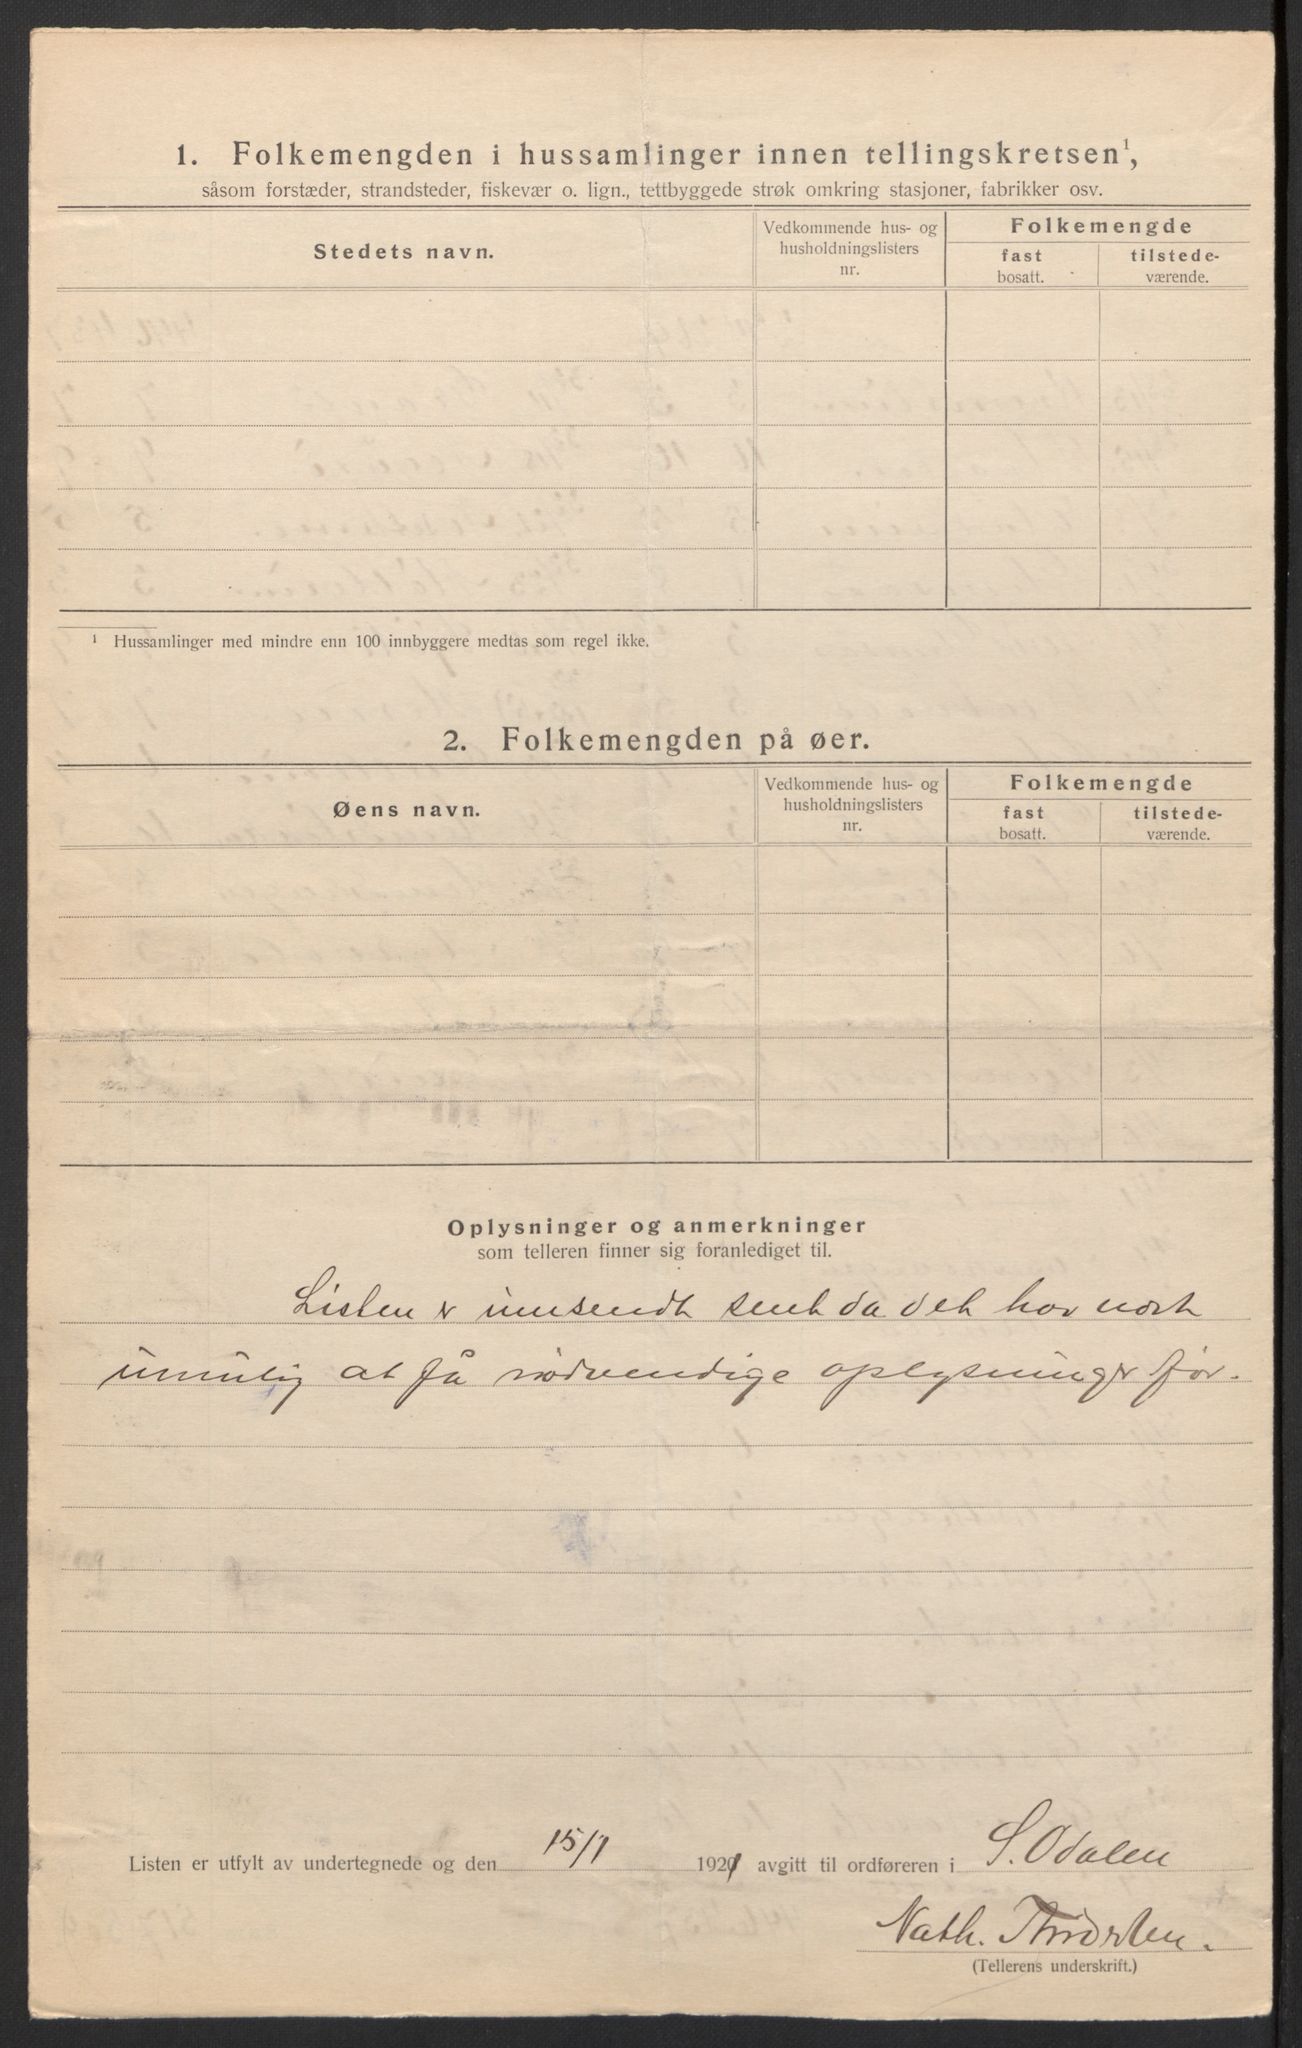 1. Folkemengden i hussamlinger innen tellingskretsen¹,
såsom forstæder, strandsteder, fiskevær o. lign., tettbyggede strøk omkring stasjoner, fabrikker osv.
Stedets navn.
Vedkommende hus- og
husholdningslisters
nr.
Folkemengde
fast
bosatt.
tilstede-
værende.
¹ Hussamlinger med mindre enn 100 innbyggere medtas som regel ikke.
2. Folkemengden på øer.
Øens navn.
Vedkommende hus- og
husholdningslisters
nr.
Folkemengde
fast
bosatt.
tilstede-
værende.
Oplysninger og anmerkninger
som telleren finner sig foranlediget til.
Listen er innsendt sent da det har vært
umulig at få nødvendige oplysninger før.
Listen er utfylt av undertegnede og den 15/1 1921 avgitt til ordføreren i S. Odalen
Nath.
(Tellerens underskrift.)